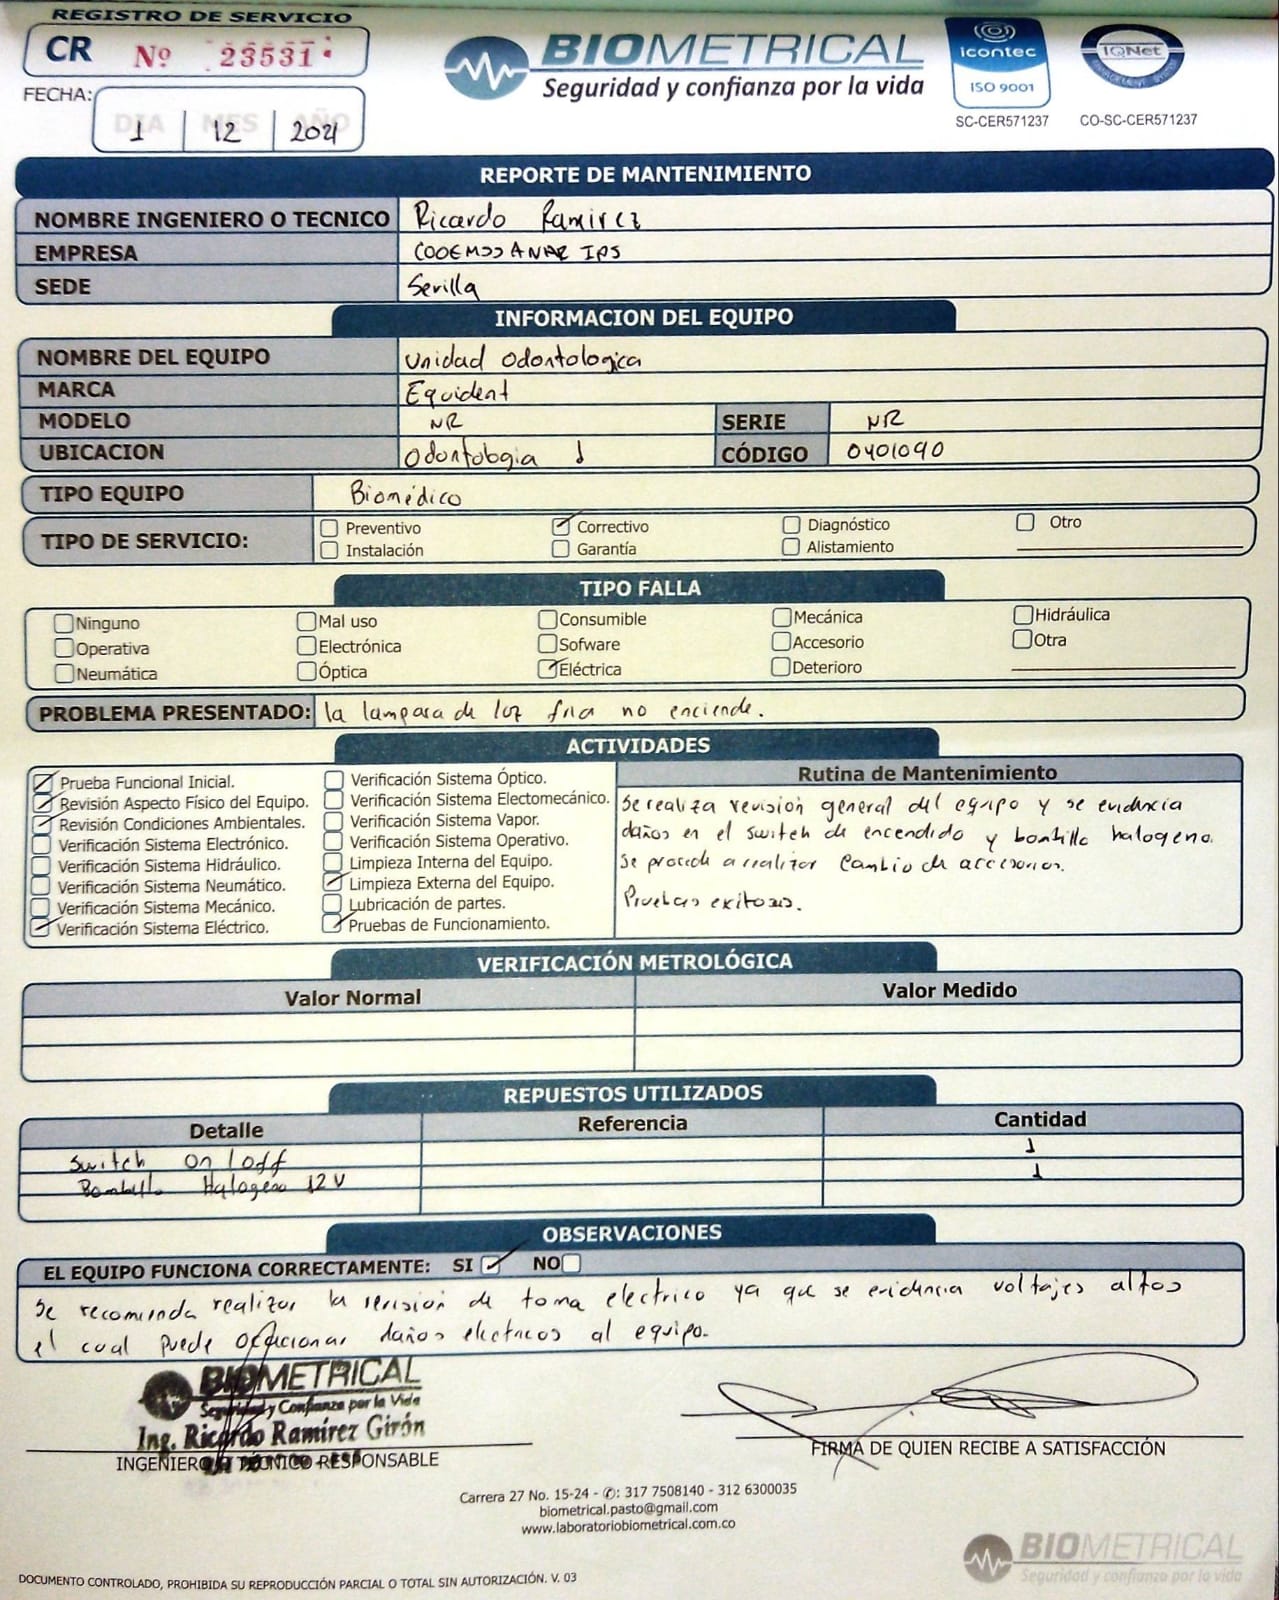 REGISTRO DE SERVICIO
CR Nº 23531
BIOMETRICAL
Seguridad y confianza por la vida
icontec
ISO 9001
SC-CER571237
IQNet
MANAGEMENT SYSTEM
CO-SC-CER571237
FECHA:
DIA MES AÑO
1 12 2021
REPORTE DE MANTENIMIENTO
NOMBRE INGENIERO O TECNICO Ricardo Ramirez
EMPRESA IPS
SEDE Sevilla
INFORMACION DEL EQUIPO
NOMBRE DEL EQUIPO Unidad Odontologica
MARCA Equident
MODELO NR SERIE NR
UBICACION Odontologia 1 CÓDIGO 0401090
TIPO EQUIPO Biomédico
TIPO DE SERVICIO:
Preventivo Correctivo Diagnóstico Otro
Instalación Garantía Alistamiento
TIPO FALLA
Ninguno Mal uso Consumible Mecánica Hidráulica
Operativa Electrónica Sofware Accesorio Otra
Neumática Óptica Eléctrica Deterioro
PROBLEMA PRESENTADO: la lampara de luz fria no enciende.
ACTIVIDADES
Prueba Funcional Inicial.
Revisión Aspecto Físico del Equipo.
Revisión Condiciones Ambientales.
Verificación Sistema Electrónico.
Verificación Sistema Hidráulico.
Verificación Sistema Neumático.
Verificación Sistema Mecánico.
Verificación Sistema Eléctrico.
Verificación Sistema Óptico.
Verificación Sistema Electomecánico.
Verificación Sistema Vapor.
Verificación Sistema Operativo.
Limpieza Interna del Equipo.
Limpieza Externa del Equipo.
Lubricación de partes.
Pruebas de Funcionamiento.
Rutina de Mantenimiento
Se realiza revisión general del equipo y se evidencia
daños en el switch de encendido y bombillo halogeno.
Se procede a realizar cambio de accesorios.
Pruebas exitosas.
VERIFICACIÓN METROLÓGICA
Valor Normal Valor Medido
REPUESTOS UTILIZADOS
Detalle Referencia Cantidad
Switch On / off 1
Bombillo Halogeno 12 V 1
OBSERVACIONES
EL EQUIPO FUNCIONA CORRECTAMENTE: SI NO
Se recomienda realizar la revisión de toma electrico ya que se evidencia voltajes altos
el cual puede ocacionar daños electricos al equipo.
BIOMETRICAL
Seguridad y Confianza por la Vida
Ing. Ricardo Ramírez Girón
INGENIERO O TÉCNICO RESPONSABLE
FIRMA DE QUIEN RECIBE A SATISFACCIÓN
Carrera 27 No. 15-24 - ✆: 317 7508140 - 312 6300035
biometrical.pasto@gmail.com
www.laboratoriobiometrical.com.co
BIOMETRICAL
Seguridad y confianza por la vida
DOCUMENTO CONTROLADO, PROHIBIDA SU REPRODUCCIÓN PARCIAL O TOTAL SIN AUTORIZACIÓN. V. 03